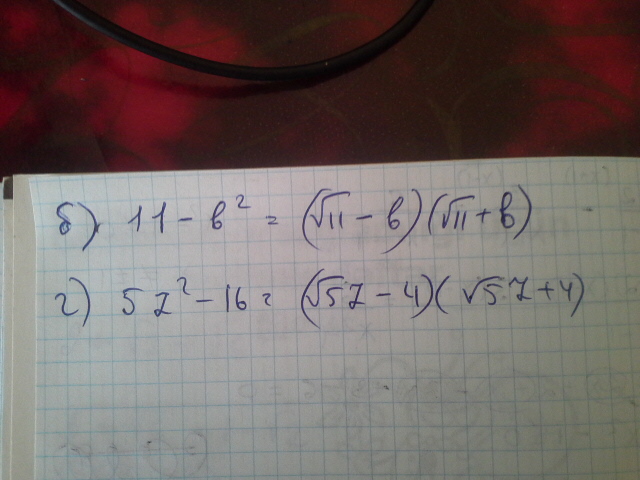 б) 11 - в² = (√11 - в)(√11 + в)
г) 5z² - 16 = (√5z - 4)(√5z + 4)